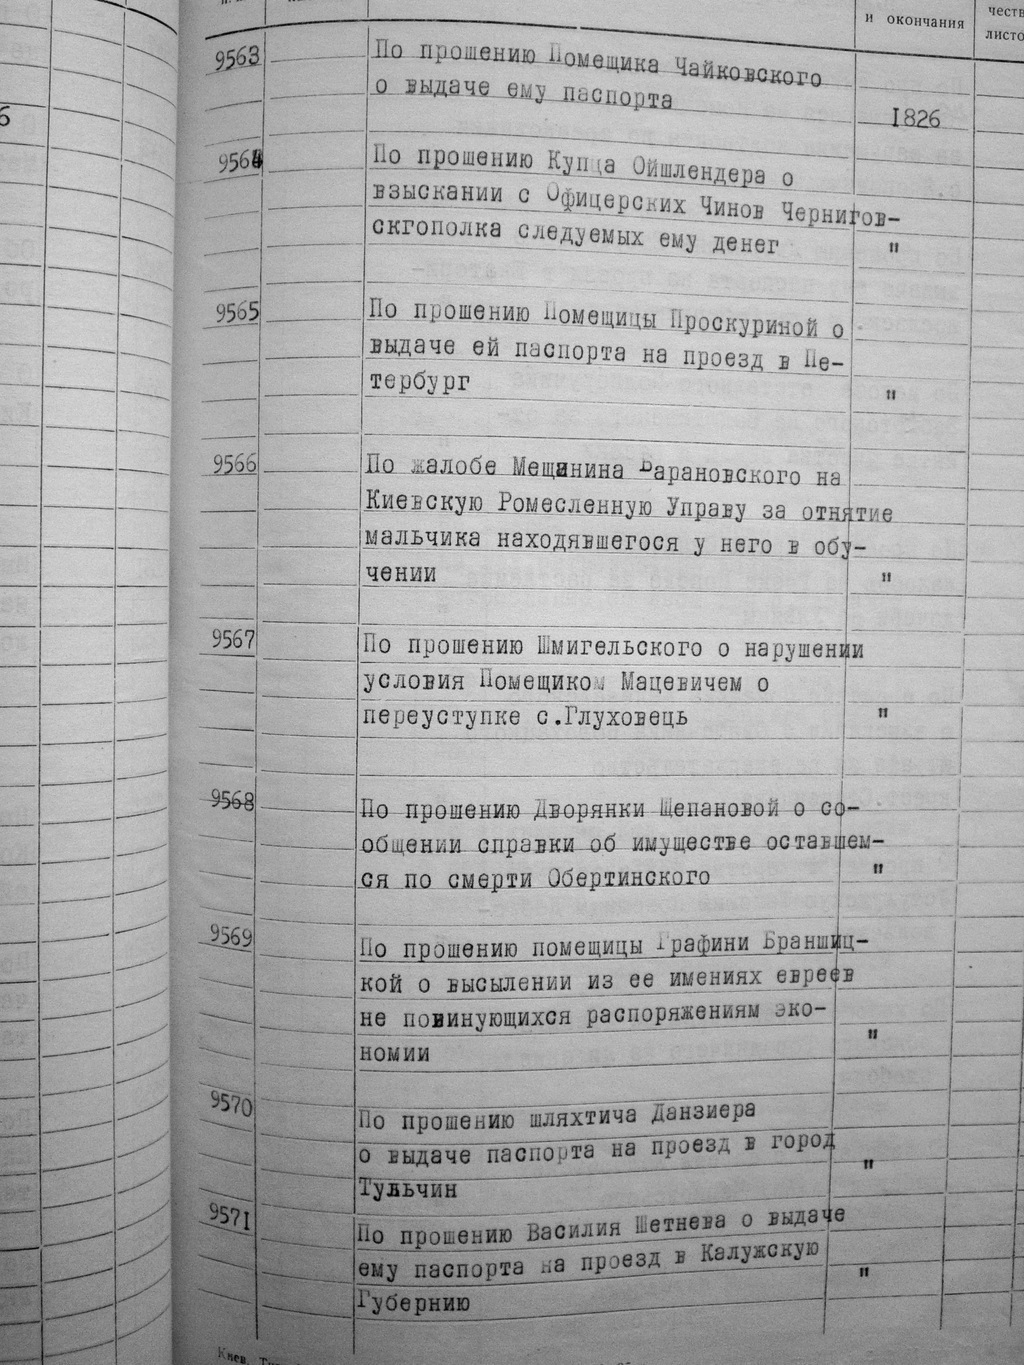 и окончания
честв
листо
9563
По прошению Помещика Чайковского
о выдаче ему паспорта
1826
9564
По прошению Купца Ойшлендера о
взыскании с Офицерских Чинов Чернигов-
скгополка следуемых ему денег
"
9565
По прошению Помещицы Проскуриной о
выдаче ей паспорта на проезд в Пе-
тербург
"
9566
По жалобе Мещанина Барановского на
Киевскую Ромесленную Управу за отнятие
мальчика находявшегося у него в обу-
чении
"
9567
По прошению Шмигельского о нарушении
условия Помещиком Мацевичем о
переуступке с.Глуховець
"
9568
По прошению Дворянки Щепановой о со-
общении справки об имуществе оставшем-
ся по смерти Обертинского
"
9569
По прошению помещицы Графини Браншиц-
кой о высылении из ее имениях евреев
не повинующихся распоряжениям эко-
номии
"
9570
По прошению шляхтича Данзиера
о выдаче паспорта на проезд в город
Тульчин
"
9571
По прошению Василия Шетнева о выдаче
ему паспорта на проезд в Калужскую
Губернию
"
Киев.